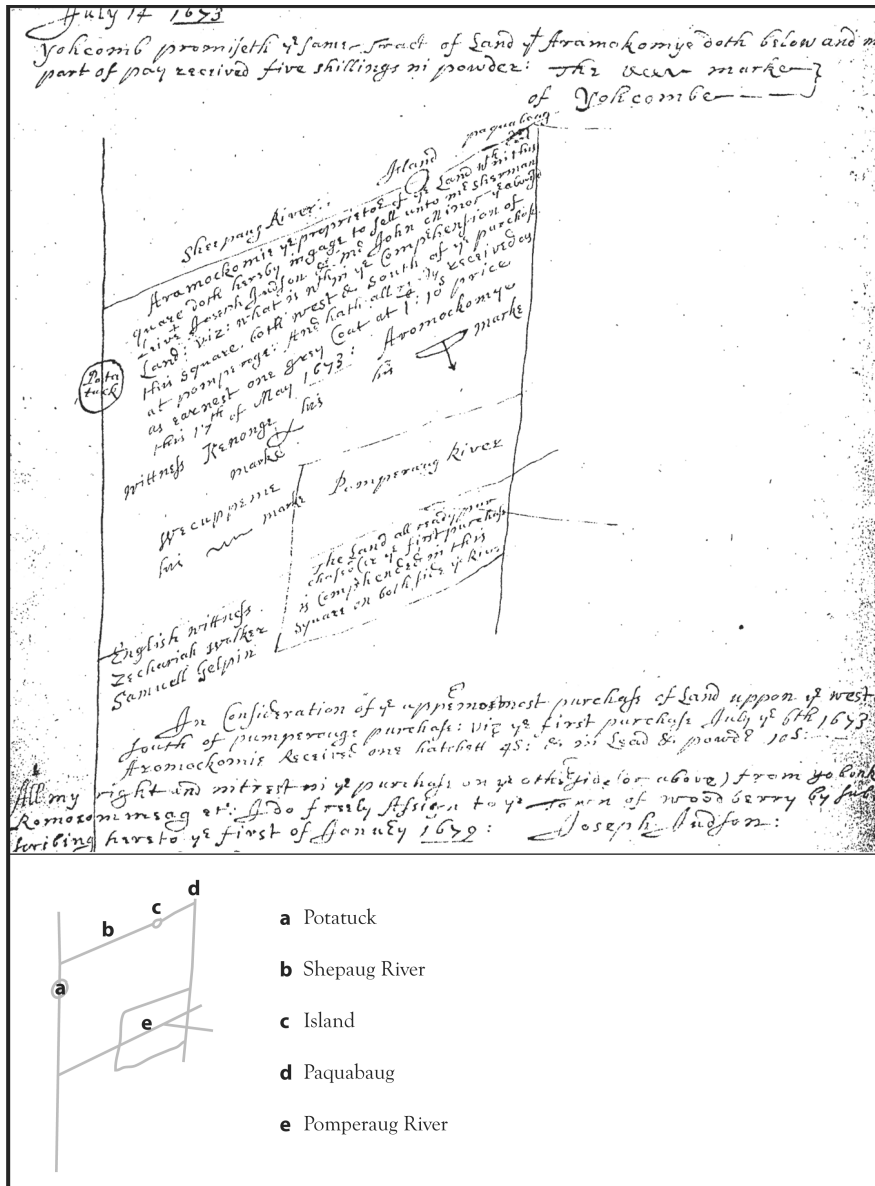 July 14 1673
Yohcomb promiseth ye same Tract of Land yt Aramakomye doth below and
part of pay received five shillings in powder: The marke
of Yohcombe
paquabaug
Island
Shepaug River
Aramockomie ye proprietor of ye Land within this
square doth hereby ingage to sell unto mr Sherman
Leivt Joseph Judson & mr John Minor ye abovesd
Land: viz: what is within ye Comprehension of
this square, both west & South of ye purchase
at pomperoge: And hath allredy received as
as earnest one grey Coat at 1ł: 10s price
this 17th of May 1673:
Aromockomye
his marke
Pota
tuck
wittness Kenonge his
marke
Wecuppeme
his marke
Pomperaug River
The Land all ready pur
chased or ye first purchase
is Comprhended in this
square on both side ye River
English wittness
Zechariah Walker
Samuell Gelpin
In Consideration of ye uppermost purchase of Land uppon ye west
south of pumperouge purchase: viz ye first purchase July ye 6th 1673
Aromockomie Received one hatchett 4s: & in Lead & powder 10s:
All my right and intrest in ye purchase on ye other side (or above) from
Romorommeag etc: I do freely Assign to ye Town of woodberry by sub
scribing hereto ye first of January 1679: Joseph Judson:
d
c
b
a
e
a Potatuck
b Shepaug River
c Island
d Paquabaug
e Pomperaug River